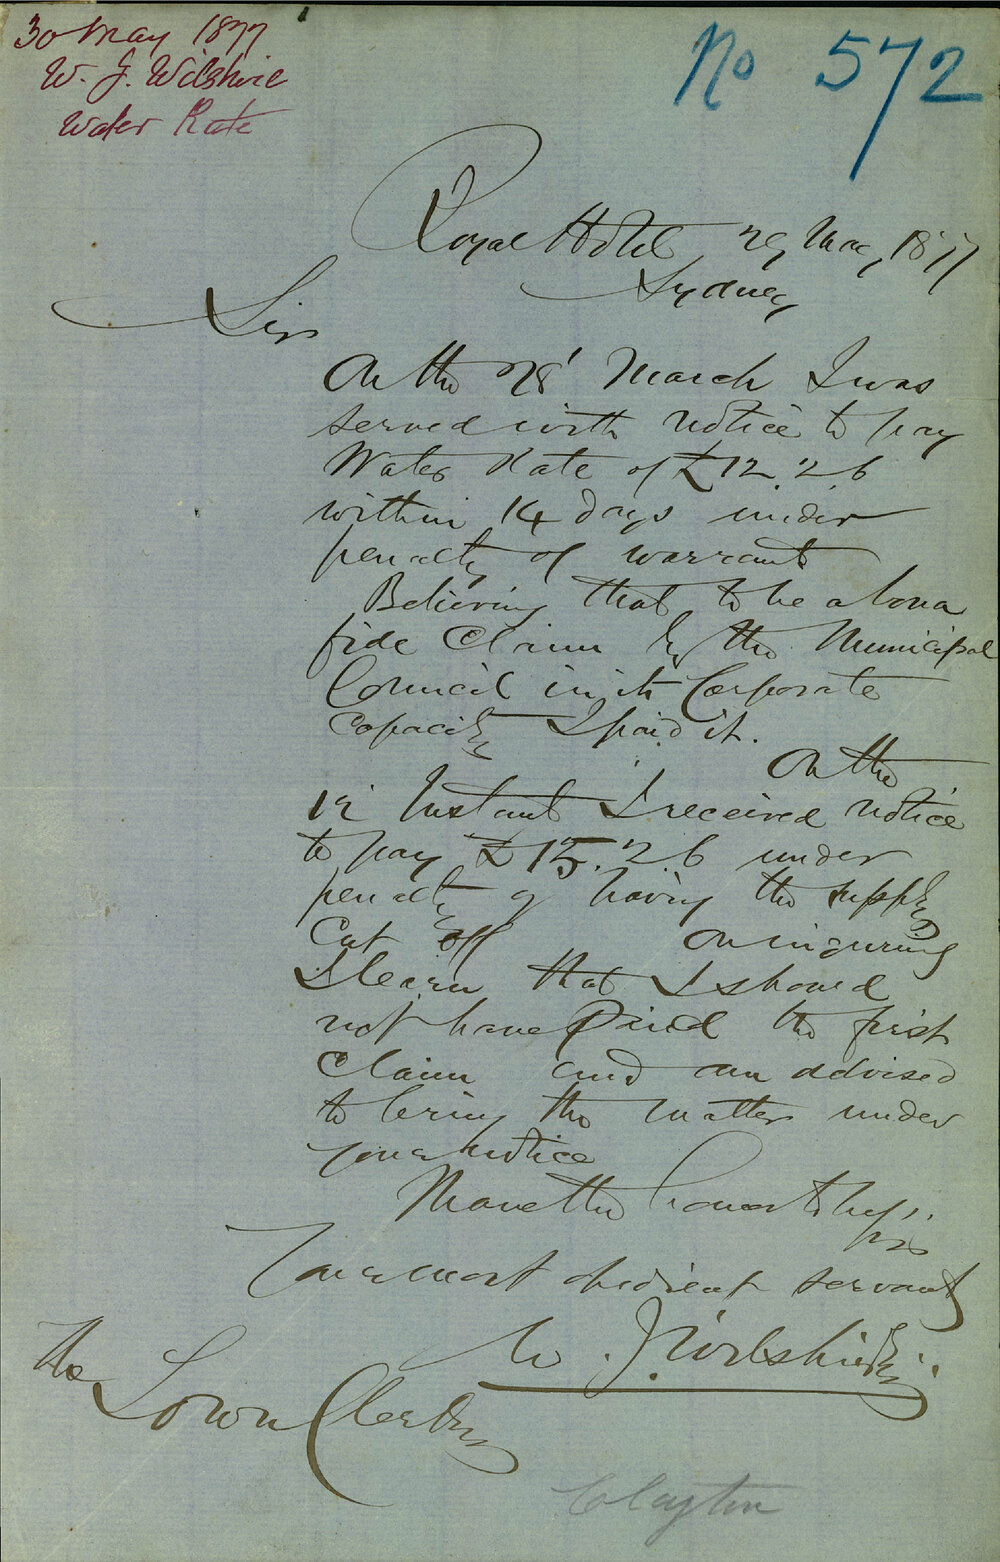 30 May 1877
W. J. Wilshire
Water Rate
No 572
Royal Hotel 29 May 1877
Sydney
Sir
On the 28 March I was
served with notice to pay
Water Rate of £12.2.6
within 14 days under
penalty of warrant
Believing that to be a bona
fide Claim by the Municipal
Council in its Corporate
capacity I paid it.
On the
Instant I received notice
to pay £15.2.6 under
penalty of having the supply
Cut off On inquiring
I learn that I should
not have paid the first
Claim and am advised
to bring the matter under
your notice
I have the honor to be
Sir
Your most obedient servant
W. J. Wilshire
The
Town Clerk
Clayton